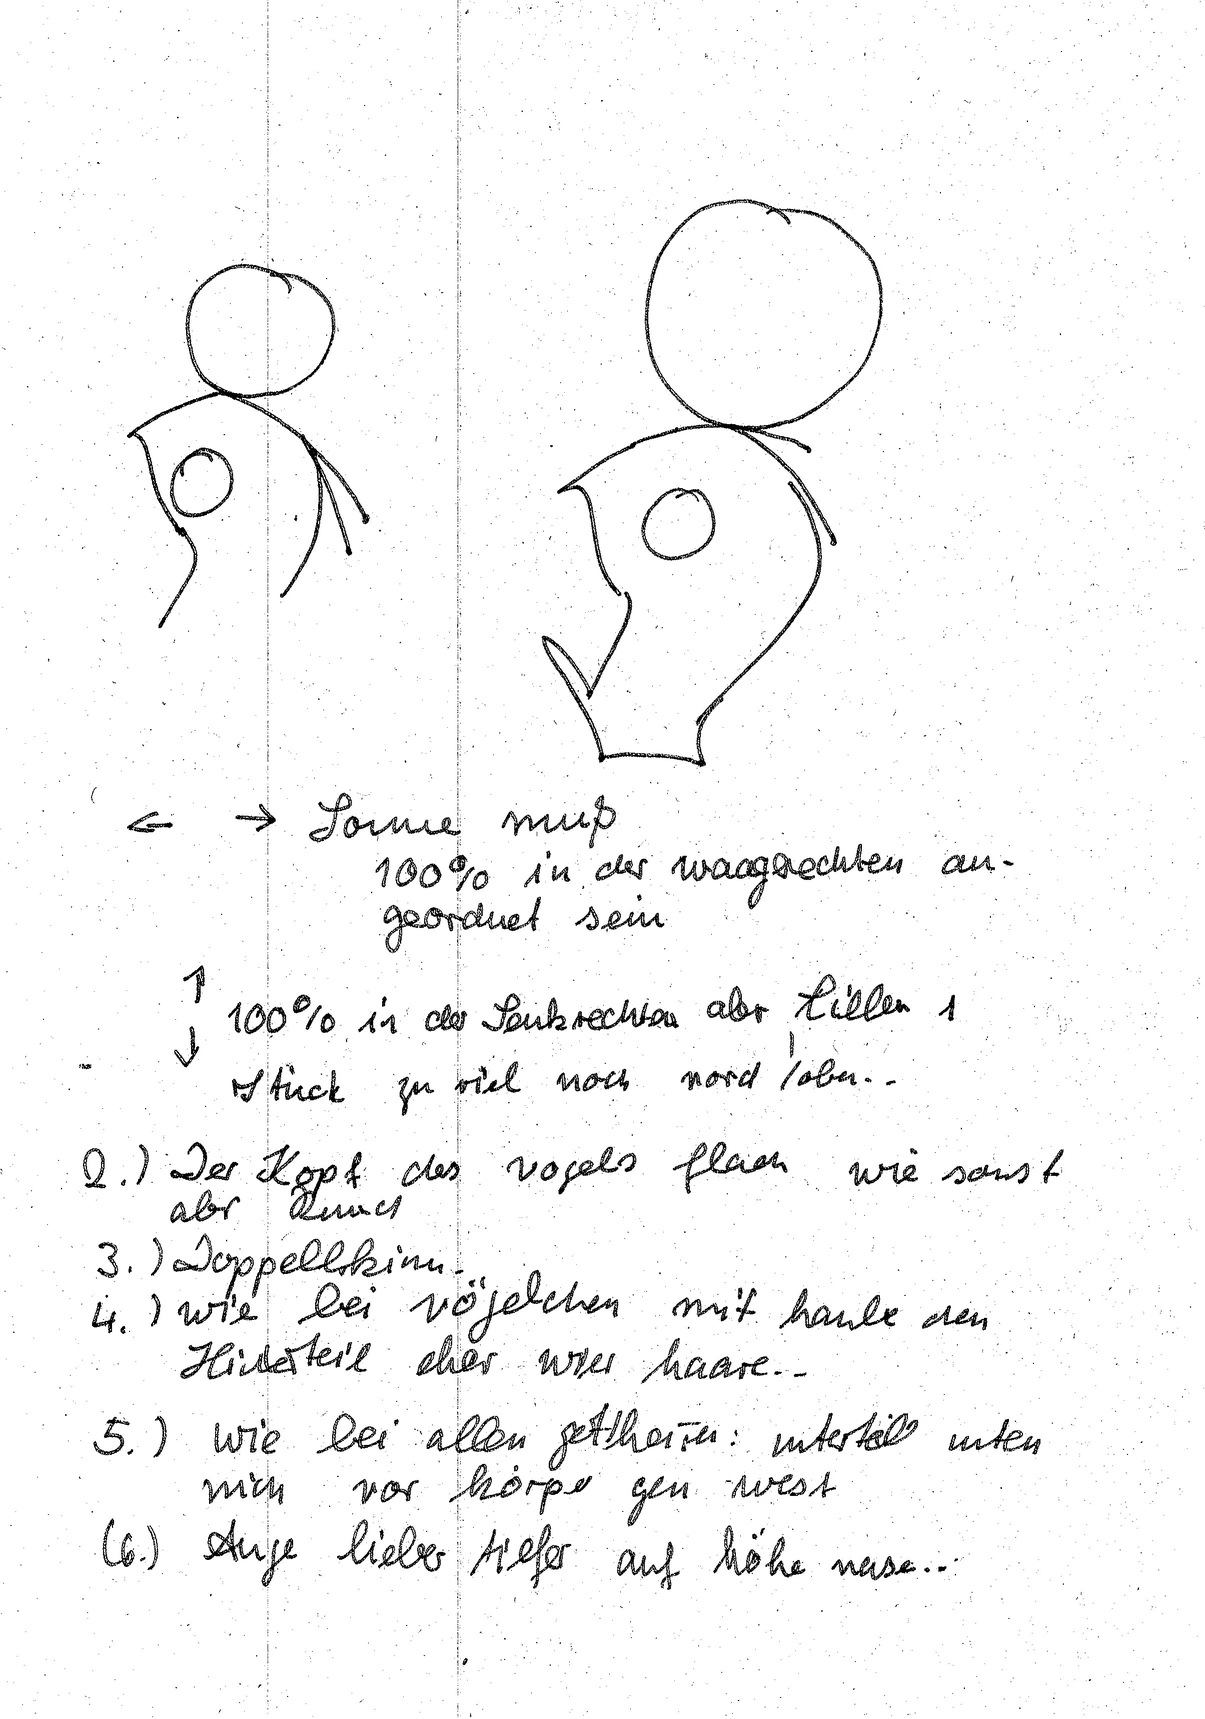 ← → Sonne muß
100% in der waagrechten an-
geordnet sein
↑
↓ 100% in der Senkrechten aber 1
stück zu viel noch nord / oben..
2.) Der Kopf des vogels flach wie sonst
aber
3.) Doppellkinn.
4.) wie bei vögelchen mit haube den
Hinterteil eher wie haare..
5.) wie bei allen : unterteil unten
nich vor körpe gen west
(6.) Auge lieber tiefer auf höhe nase...